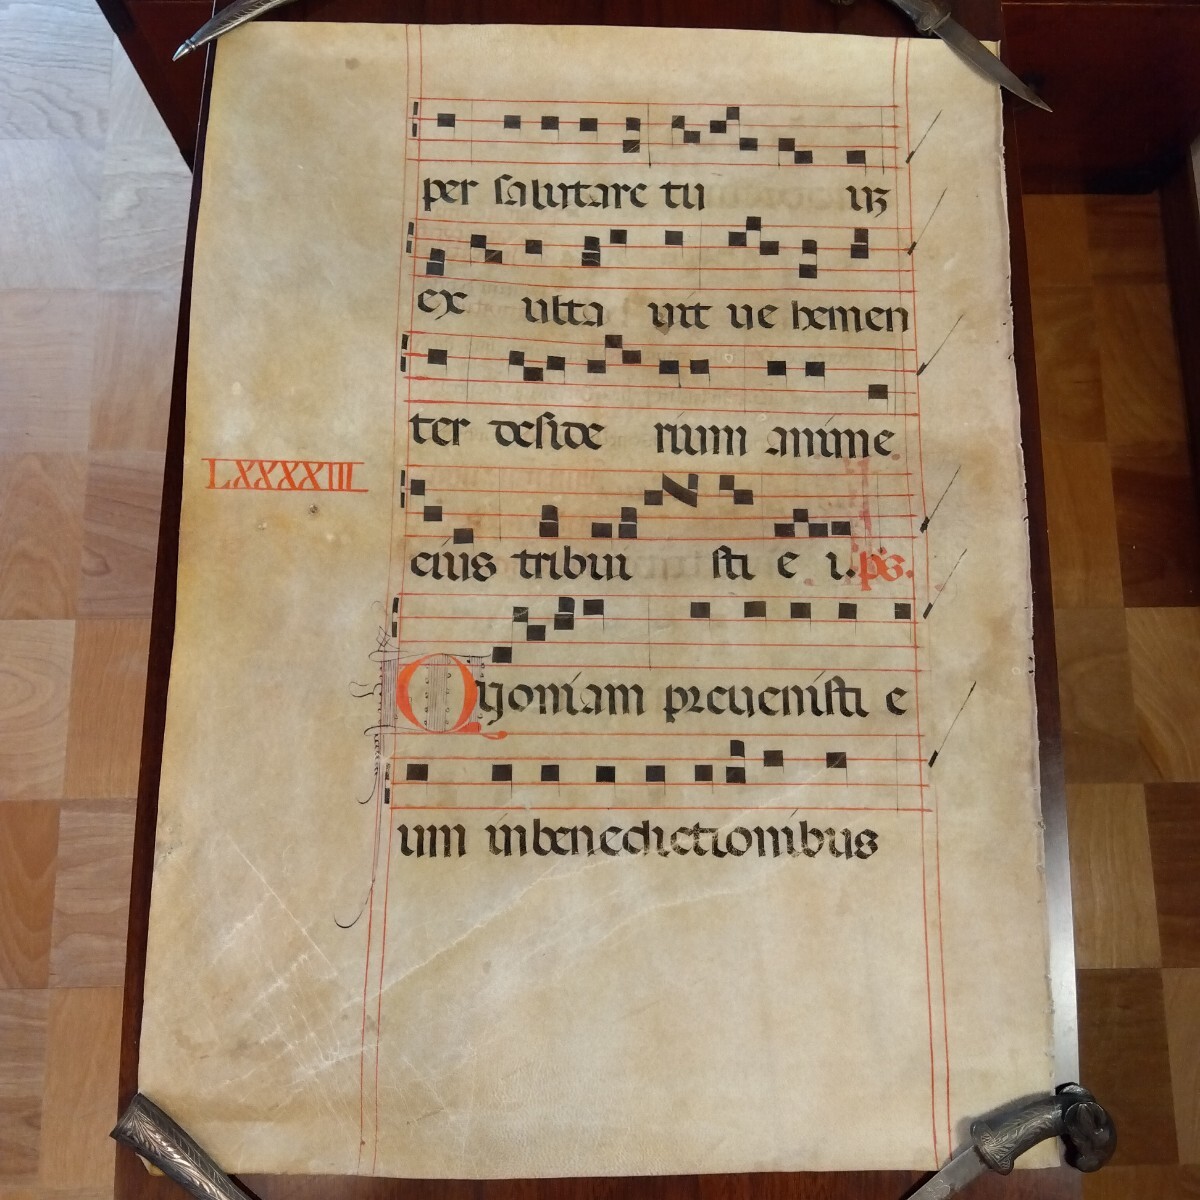 per salutare tu uz
ex ulta uit ue hemen
ter deside rium anime
LXXXXIII
eius tribui sti e i. ps.
Quoniam preuenisti e
um in benedictionibus